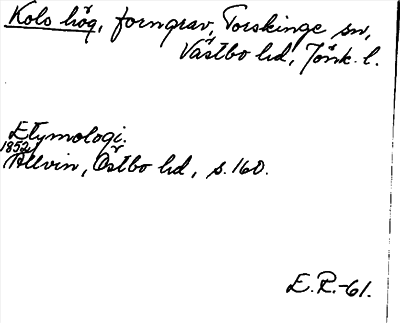 Kols hög, forngrav, Torskinge sn,
Västbo hd, Jönk. l.
Etymologi.
1852
Allvin, Östbo hd, s. 160.
E. R.-61.